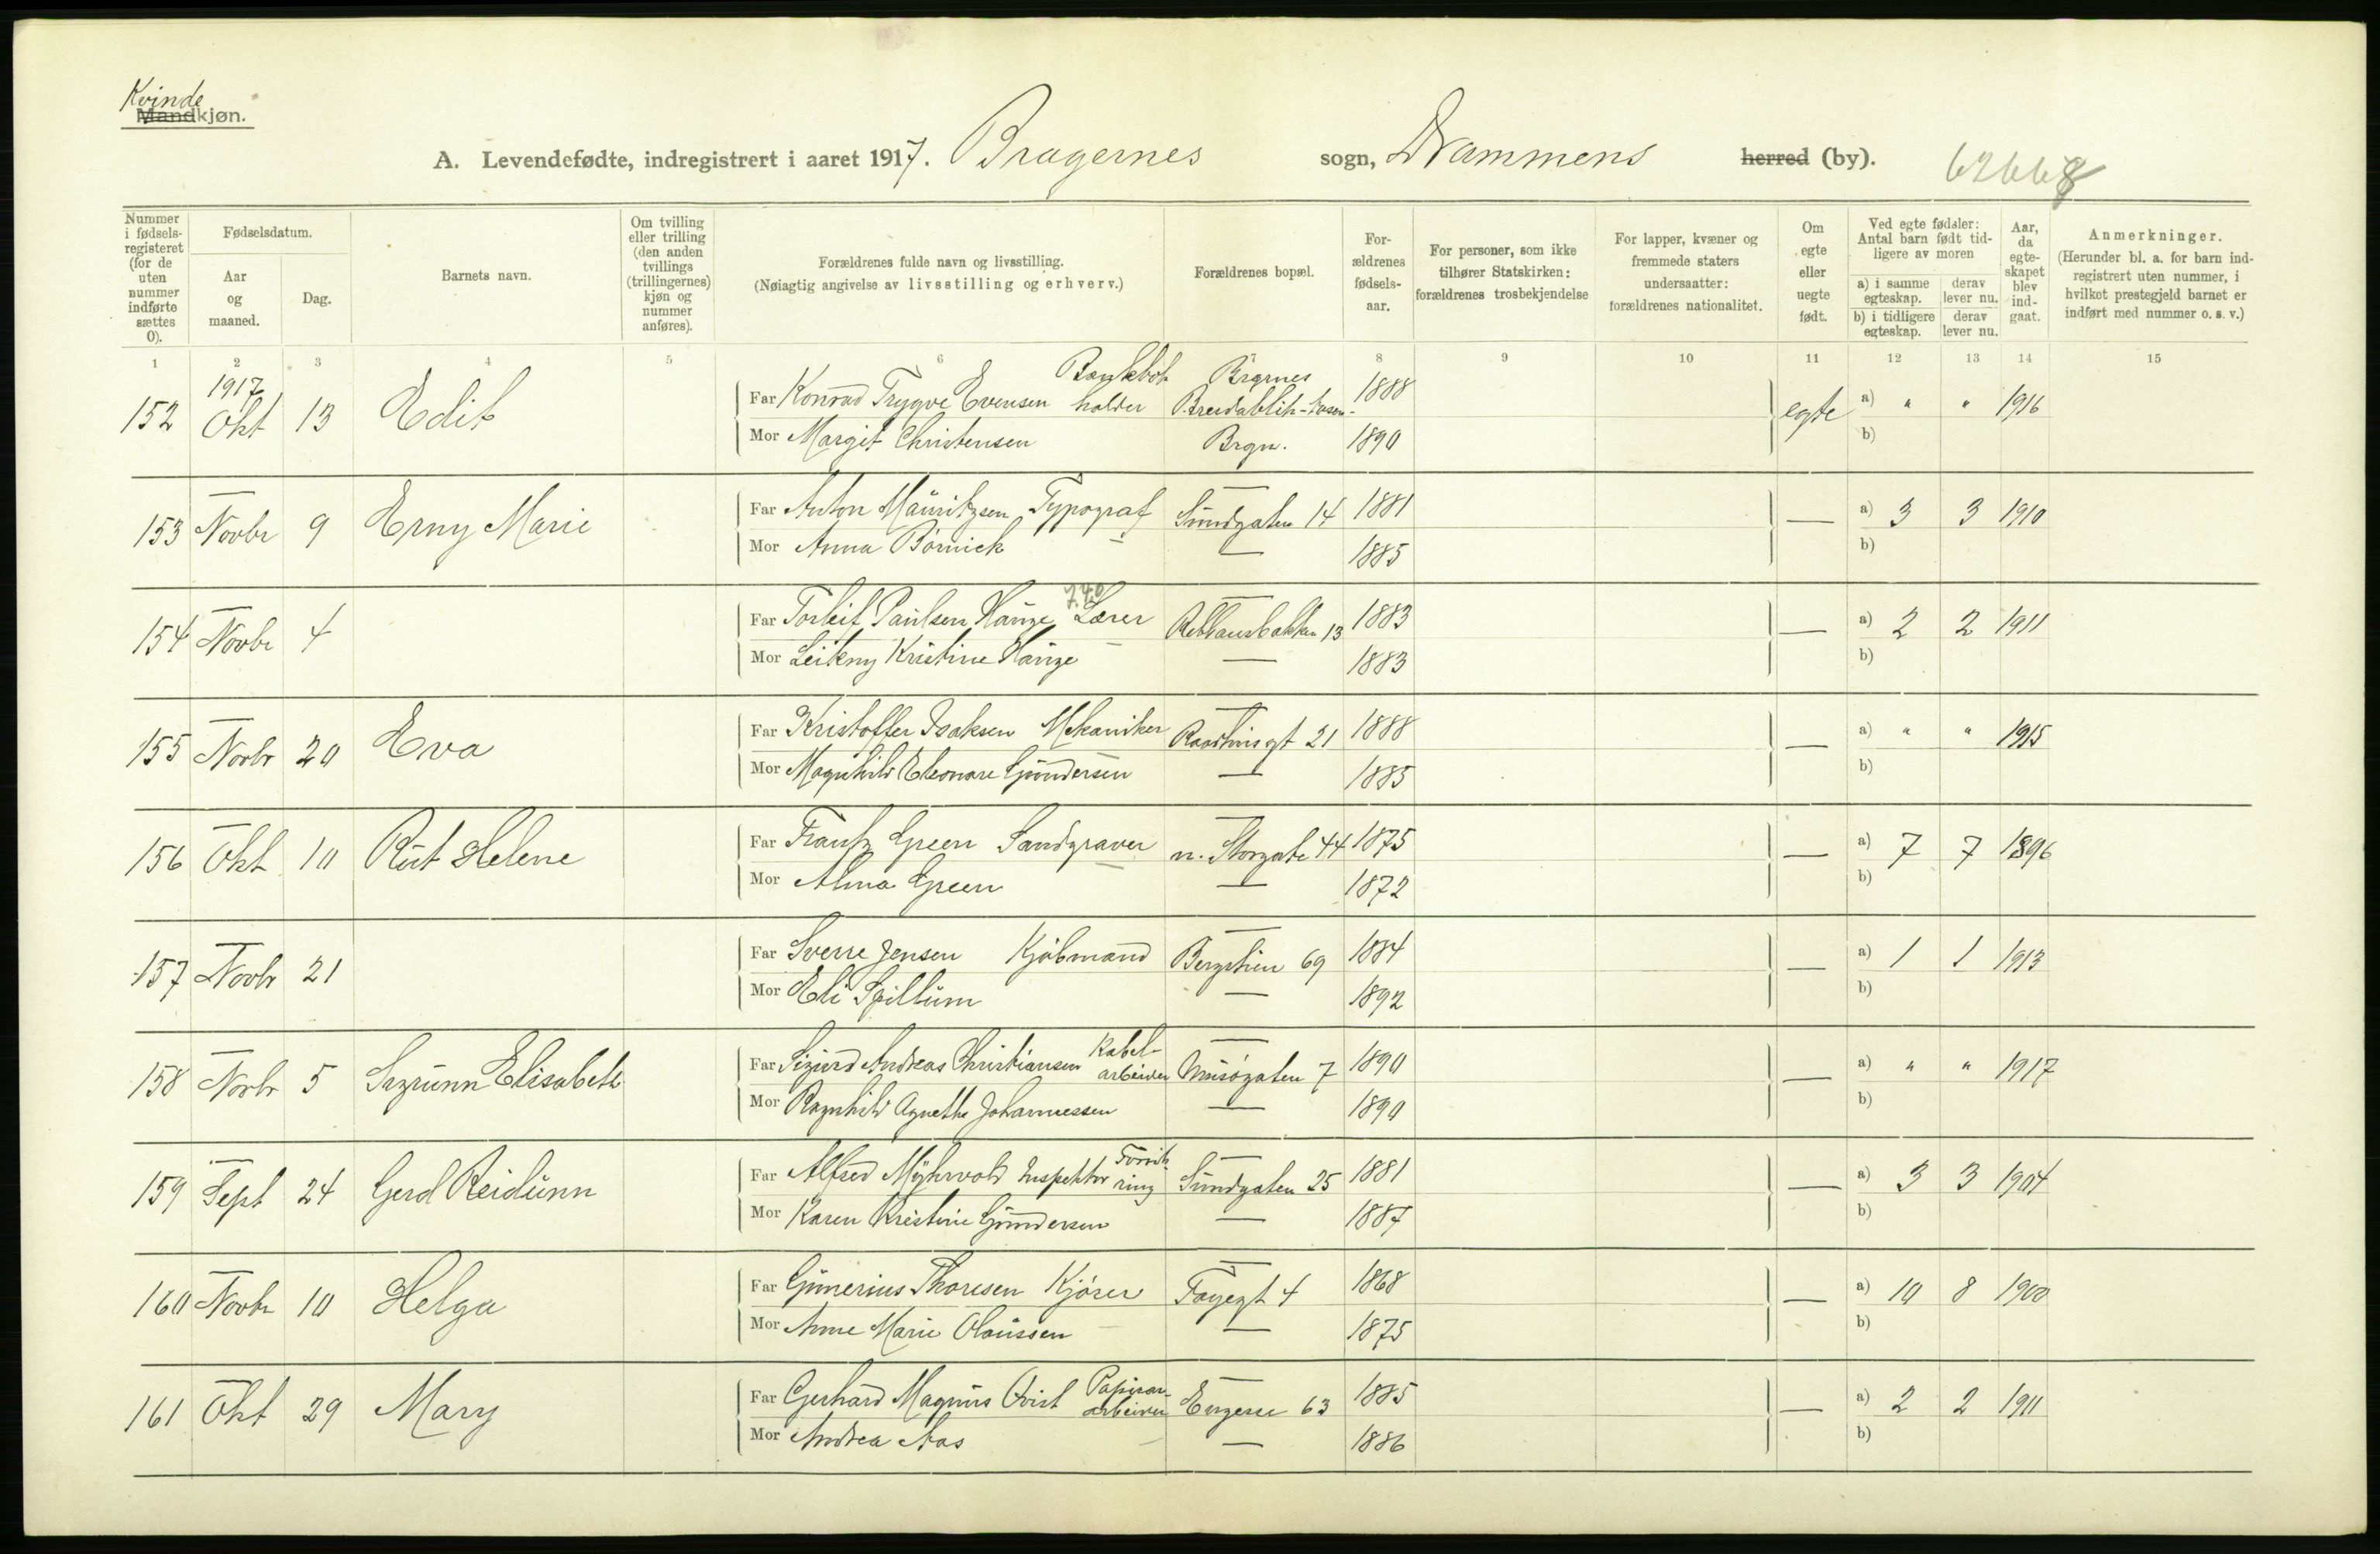 Kvinde
Mandkjøn.
A. Levendefødte, indregistrert i aaret 1917. Bragernes sogn, Drammens herred (by). 62668
Nummer i fødselsregisteret (for de uten nummer indførte sættes 0).
Fødselsdatum.
Aar og maaned.
Dag.
Barnets navn.
Om tvilling eller trilling (den anden tvillings (trillingernes) kjøn og nummer anføres).
Forældrenes fulde navn og livsstilling.
(Nøiagtig angivelse av livsstilling og erhverv.)
Forældrenes bopæl.
Forældrenes fødselsaar.
For personer, som ikke tilhører Statskirken: forældrenes trosbekjendelse
For lapper, kvæner og fremmede staters undersaatter: forældrenes nationalitet.
Om egte eller uegte født.
Ved egte fødsler: Antal barn født tidligere av moren
a) i samme egteskap. derav lever nu.
b) i tidligere egteskap. derav lever nu.
Aar, da egteskapet blev indgaat.
Anmerkninger.
(Herunder bl. a. for barn indregistrert uten nummer, i hvilket prestegjeld barnet er indført med nummer o. s. v.)
1 2 3 4 5 6 7 8 9 10 11 12 13 14 15
1917
152 Okt 13 Edit Far Konrad Trygve Evensen Bankbokholder Brgrnes 1888 egte a) " " 1916
Mor Margit Christensen Brgn. 1890 b)
153 Novbr 9 Erny Marie Far Anton Mauritzsen Typograf Sundgaten 14 1881 — a) 3 3 1910
Mor Anna Børnick — 1885 b)
154 Novbr 4 Far Torleif Paulsen Hauge Lærer 13 1883 — a) 2 2 1911
Mor Kristine Hauge — 1883 b)
155 Novbr 20 Eva Far Kristoffer Isaksen Mekaniker Raadhusgt 21 1888 — a) " " 1915
Mor Magnhild Eleonore Gundersen — 1885 b)
156 Okt 10 Rut Helene Far Frantz Green Sandgraver n. Storgate 44 1875 — a) 7 7 1896
Mor Alma Green — 1872 b)
157 Novbr 21 Far Sverre Jensen Kjøbmand Bergstien 69 1884 — a) 1 1 1913
Mor Eli Spillum — 1892 b)
158 Novbr 5 Sigrunn Elisabeth Far Sigurd Andreas Christiansen Kabelarbeider 7 1890 — a) " " 1917
Mor Ragnhild Agnethe Johannessen — 1890 b)
159 Sept 24 Gerd Reidunn Far Alfred Myhrvold Inspektør Sundgaten 25 1881 — a) 3 3 1904
Mor Karen Kristine Gundersen — 1887 b)
160 Novbr 10 Helga Far Gunerius Thoresen Kjører Fayegt 4 1868 — a) 10 8 1900
Mor Anne Marie Olaussen — 1875 b)
161 Okt 29 Mary Far Gerhard Magnus Qvist Papirarbeider Engene 63 1885 — a) 2 2 1911
Mor Andrea Aas — 1886 b)